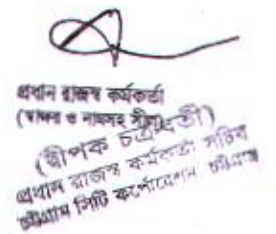 প্রধান রাজস্ব কর্মকর্তা
(স্বাক্ষর ও নামসহ সীল)
(দ্বীপক চক্রবর্তী)
প্রধান রাজস্ব কর্মকর্তা সচিব
চট্টগ্রাম সিটি কর্পোরেশন চট্টগ্রাম